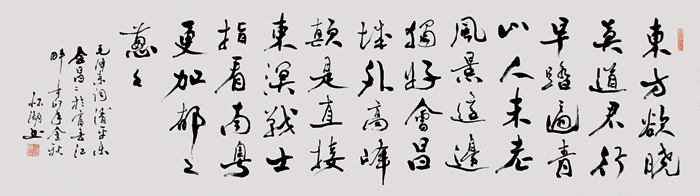 東方欲曉
莫道君行
早踏遍青
山人未老
風景這邊
獨好會昌
城外高峰
顛連直接
東溟戰士
指看南粵
更加郁々
蔥々
毛澤東詞清平樂
會昌 於富春江
畔 年金秋